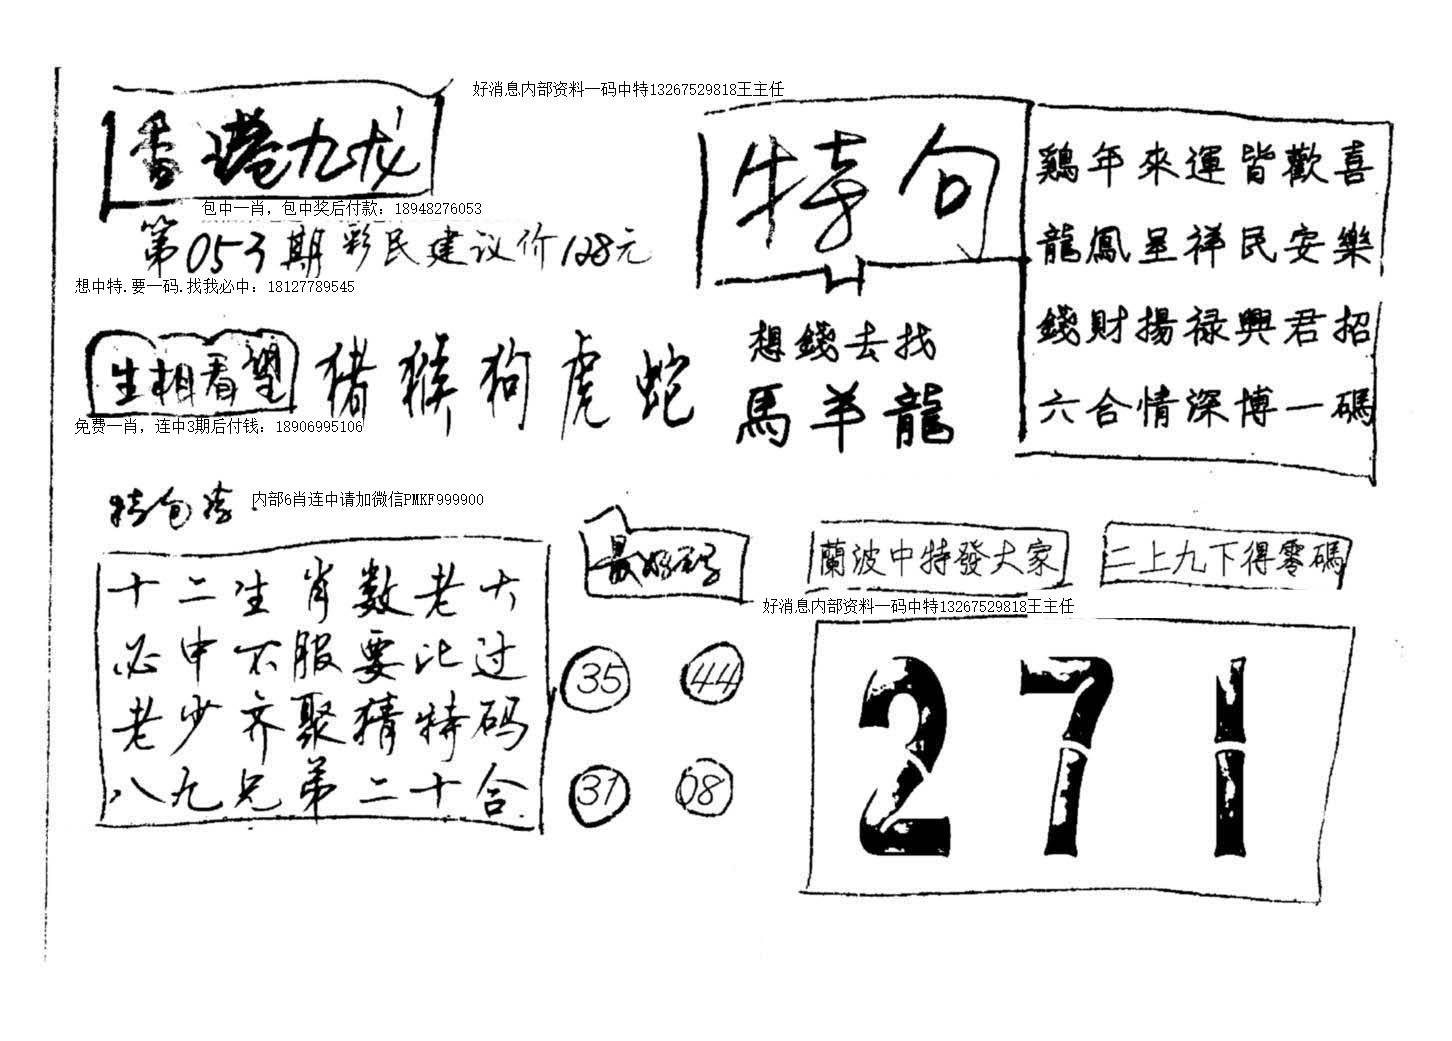 好消息内部资料一码中特13267529818王主任
香港九龙
包中一肖，包中奖后付款：18948276053
第053期彩民建议价128元
想中特.要一码.找我必中：18127789545
特句
鷄年來運皆歡喜
龍鳳呈祥民安樂
錢財揚禄興君招
六合情深博一碼
想錢去找
馬羊龍
生相看望
猪猴狗虎蛇
免费一肖，连中3期后付钱：18906995106
内部6肖连中请加微信PMKF999900
十二生肖数老大
必中不服要比过
老少齐聚猜特码
八九兄弟二十合
最好码
35 44
31 08
蘭波中特發大家
二上九下得零碼
好消息内部资料一码中特13267529818王主任
271